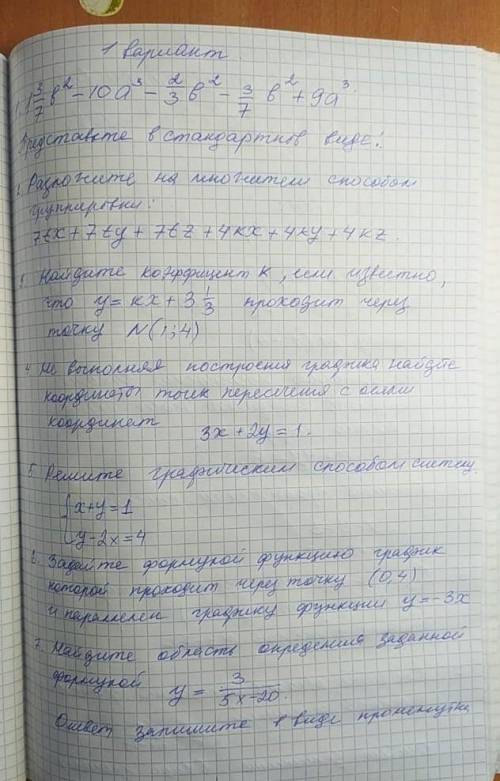 1 Вариант
1. 1 3/7 b² - 10a³ - 2/3 b² - 3/7 b² + 9a³
Представьте в стандартнов виде!
2. Разложите на множители способом
группировки:
7tx + 7ty + 7tz + 4kx + 4ky + 4kz.
3. Найдите коэффицент к, если известно,
что y = kx + 3 1/3 проходит через
точку N(1;4)
4. Не выполняя построения графика найдите
координаты точек пересечения с осями
координат
3x + 2y = 1.
5. Решите графическим способом систему
{x+y=1
{y-2x=4
6. Задайте формулой функцию график
которой проходит через точку (0,4)
и параллелен графику функции y=-3x
7. Найдите область определения заданной
формулой y = 3/(5x-20).
Ответ запишите в виде промежутка